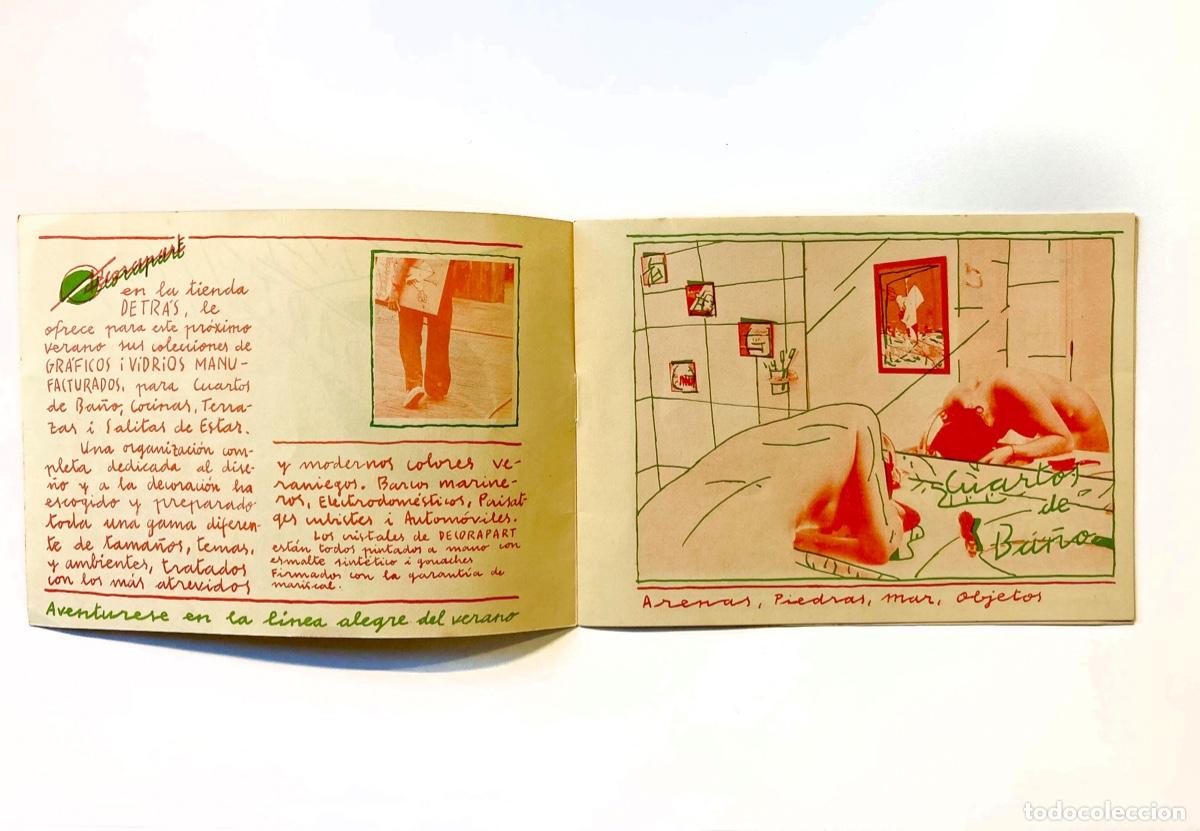 Decorapart
en la tienda
DETRÁS, le
ofrece para este próximo
verano sus colecciones de
GRÁFICOS i VIDRIOS MANU-
FACTURADOS, para Cuartos
de Baño, Cocinas, Terra-
zas i Salitas de Estar.
Una organización com-
pleta dedicada al dise-
ño y a la decoración ha
escogido y preparado
toda una gama diferen-
te de tamaños, temas,
y ambientes, tratados
con los más atrevidos
y modernos colores ve-
raniegos. Barcos marine-
ros, Electrodomésticos, Paisat-
ges cubistes i Automóviles.
Los cristales de DECORAPART
están todos pintados a mano con
esmalte sintético i gouaches
Firmados con la garantía de
mariscal.
Aventurese en la línea alegre del verano
Cuartos
de
Baño
Arenas, Piedras, Mar, Objetos
todocoleccion